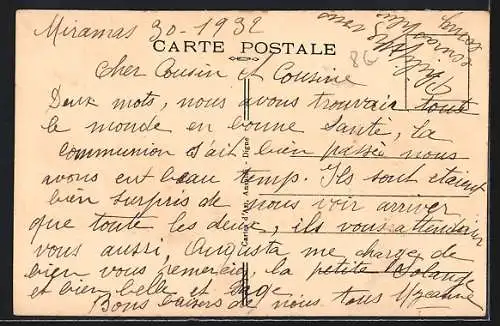 Miramas 30-1932
CARTE POSTALE
86
Cher Cousin et Cousine
Deux mots, nous avons trouvair toute
le monde en bonne santé, la
communion s'ait bien passée nous
avons eut beau temps. Ils sont etaient
bien surpris de nous voir arriver
que toute les deux, ils vous attendorier
vous aussi, Augusta me charge de
bien vous remercier, la petite Solange
et bien belle et sage
Bons baisers de nous tous Suzanne
Carte d'Art Digne